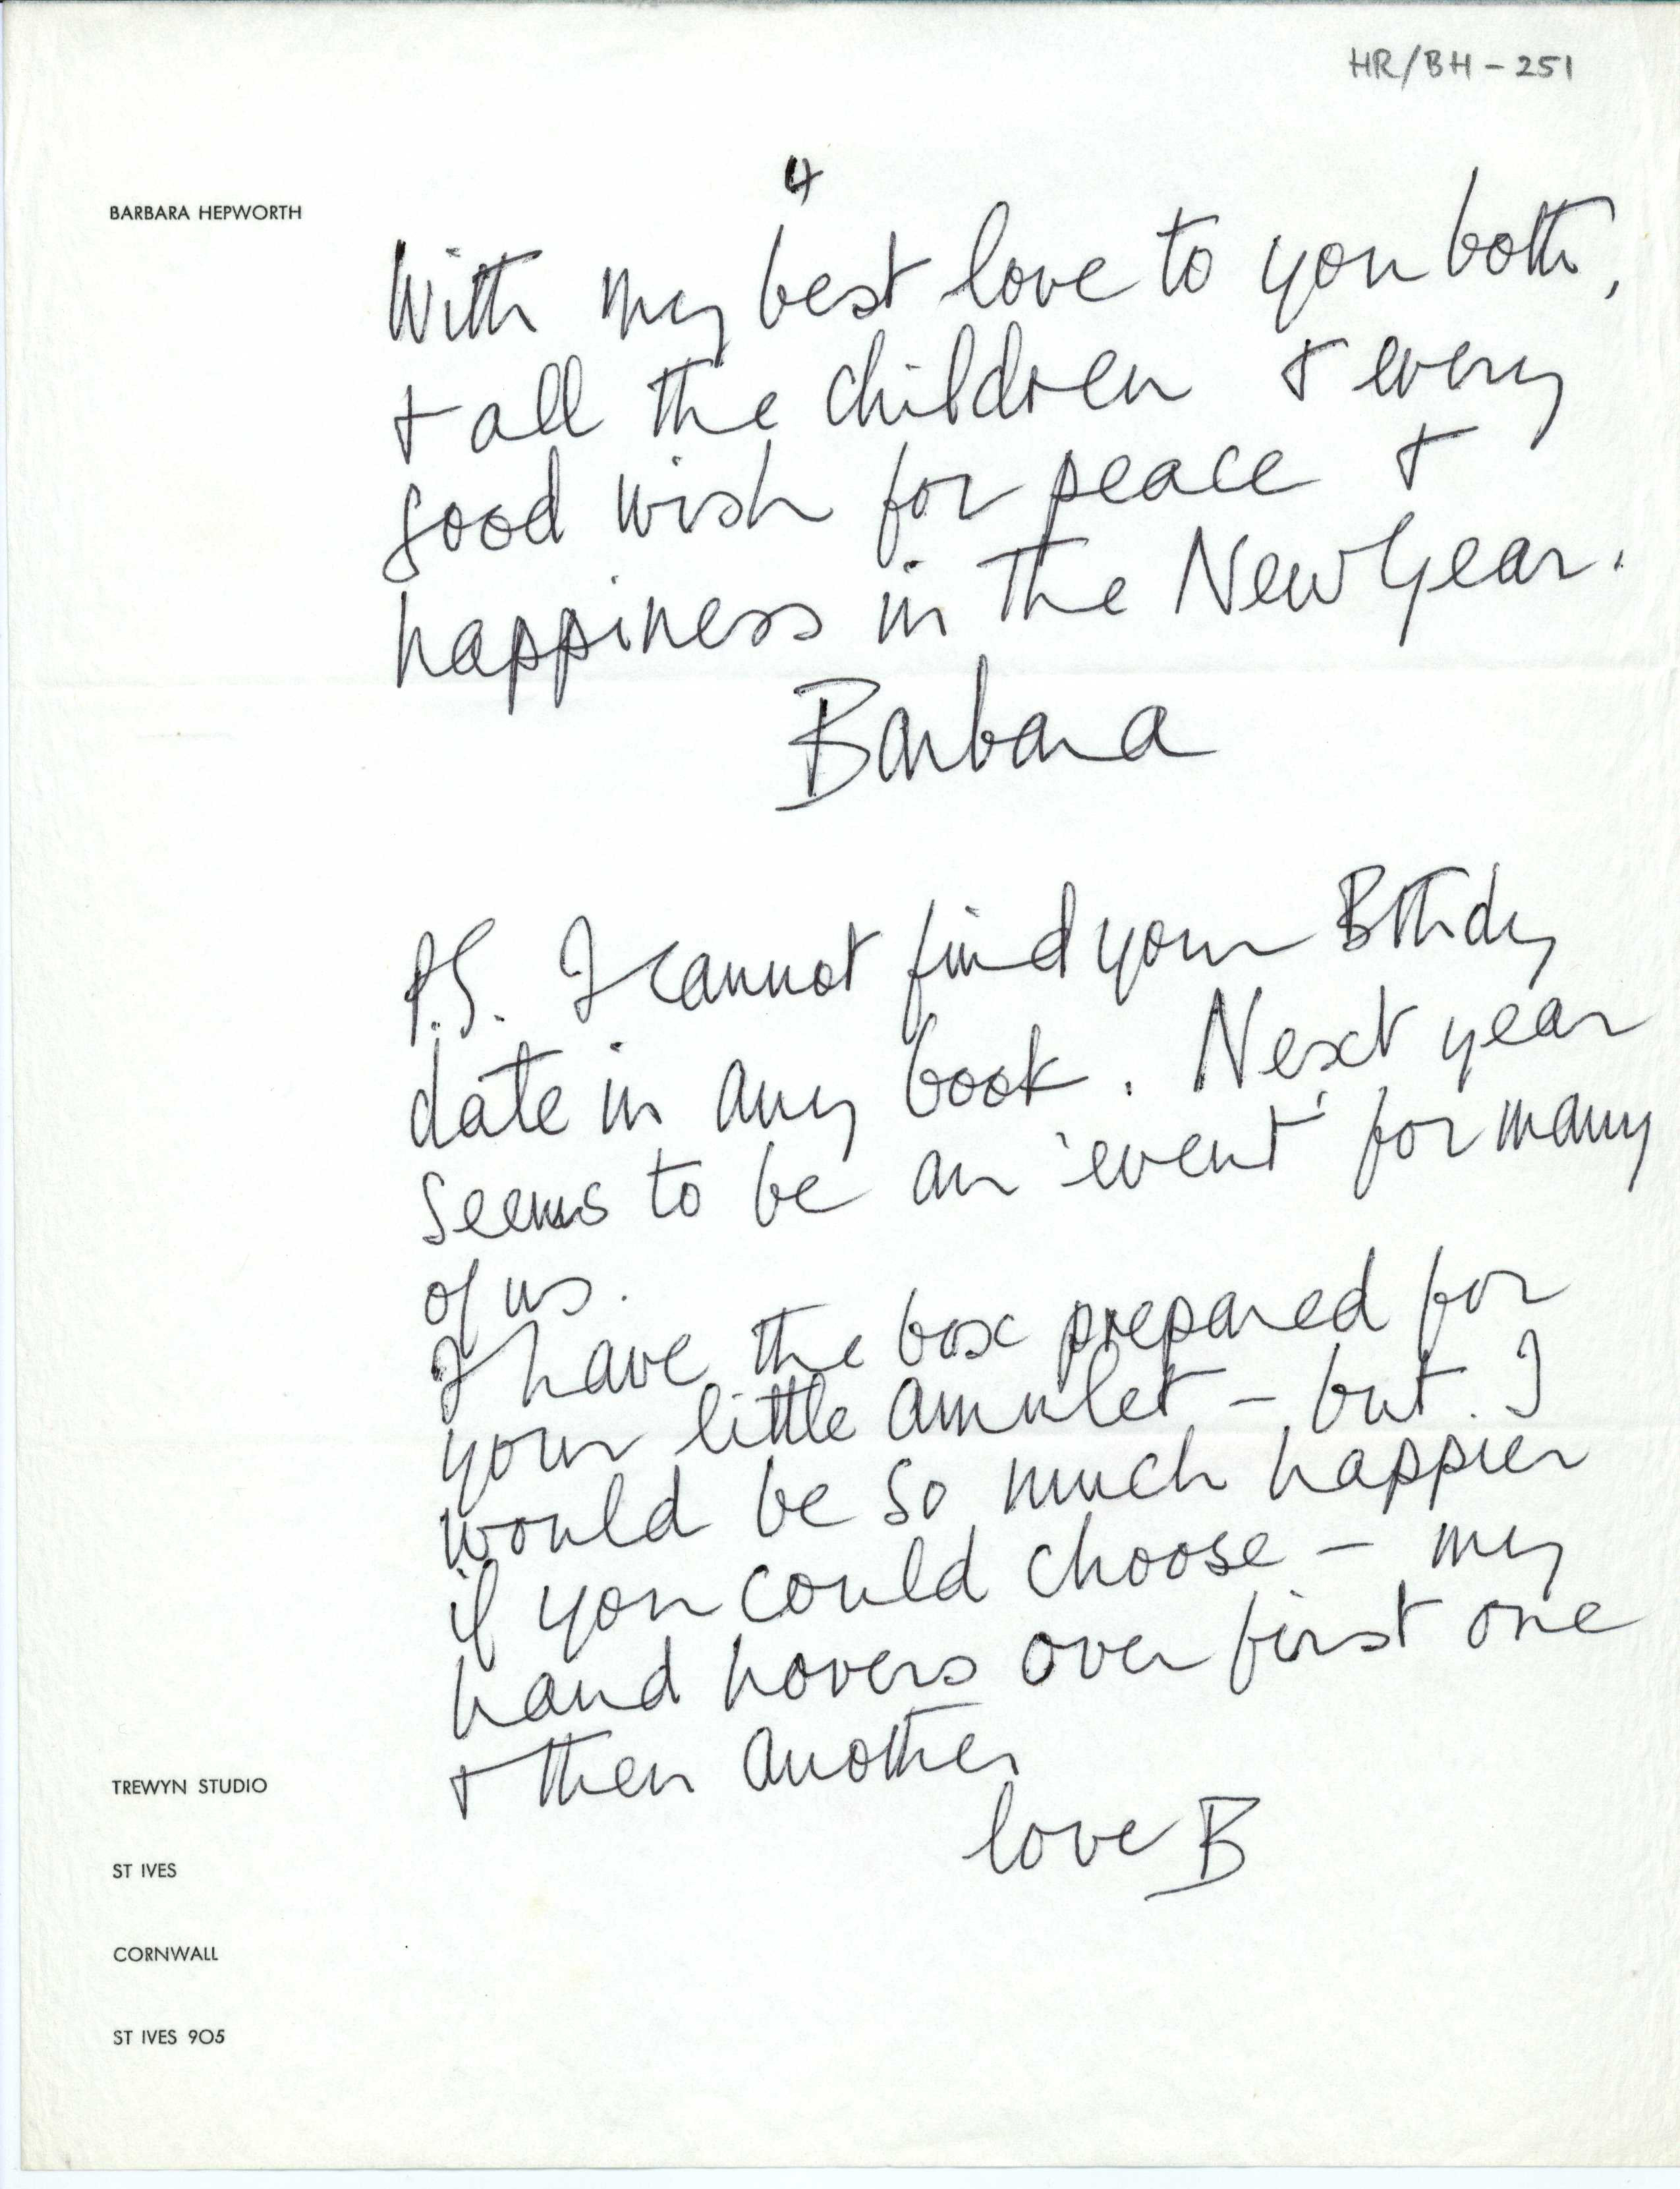 HR/BH - 251
4
BARBARA HEPWORTH
With my best love to you both,
+ all the children + every
good wish for peace +
happiness in the New Year.
Barbara
P.S. I cannot find your Bthdy
date in any book. Next year
seems to be an 'event' for many
of us.
I have the box prepared for
your little amulet – but I
would be so much happier
if you could choose – my
hand hovers over first one
+ then another
love B
TREWYN STUDIO
ST IVES
CORNWALL
ST IVES 905